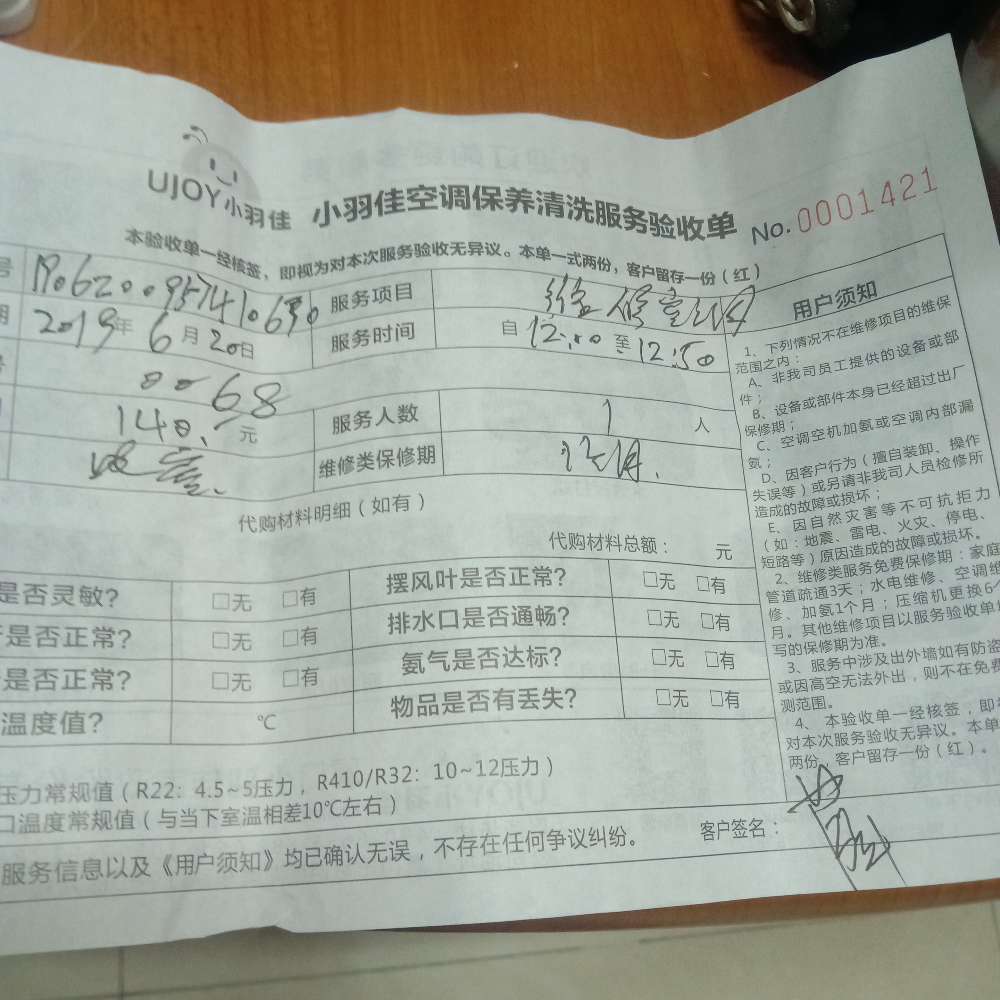 UJOY小羽佳 小羽佳空调保养清洗服务验收单 No.0001421
本验收单一经核签，即视为对本次服务验收无异议。本单一式两份，客户留存一份（红）
号 服务项目
期 2019年6月20日 服务时间 自12:00至12:50
0068
140. 元 服务人数 1 人
维修类保修期
代购材料明细（如有）
代购材料总额： 元
是否灵敏？ □无 □有 摆风叶是否正常？ □无 □有
是否正常？ □无 □有 排水口是否通畅？ □无 □有
是否正常？ □无 □有 氨气是否达标？ □无 □有
温度值？ ℃ 物品是否有丢失？ □无 □有
压力常规值（R22：4.5~5压力，R410/R32：10~12压力）
口温度常规值（与当下室温相差10℃左右）
服务信息以及《用户须知》均已确认无误，不存在任何争议纠纷。 客户签名：
用户须知
1、下列情况不在维修项目的维保
范围之内：
A、非我司员工提供的设备或部
件；
B、设备或部件本身已经超过出厂
保修期；
C、空调空机加氨或空调内部漏
氨；
D、因客户行为（擅自装卸、操作
失误等）或另请非我司人员检修所
造成的故障或损坏；
E、因自然灾害等不可抗拒力
（如：地震、雷电、火灾、停电、
短路等）原因造成的故障或损坏。
2、维修类服务免费保修期：家庭
管道疏通3天；水电维修、空调维
修、加氨1个月；压缩机更换6个
月。其他维修项目以服务验收单
写的保修期为准。
3、服务中涉及出外墙如有防盗
或因高空无法外出，则不在免费
测范围。
4、本验收单一经核签，即
对本次服务验收无异议。本单
两份，客户留存一份（红）。